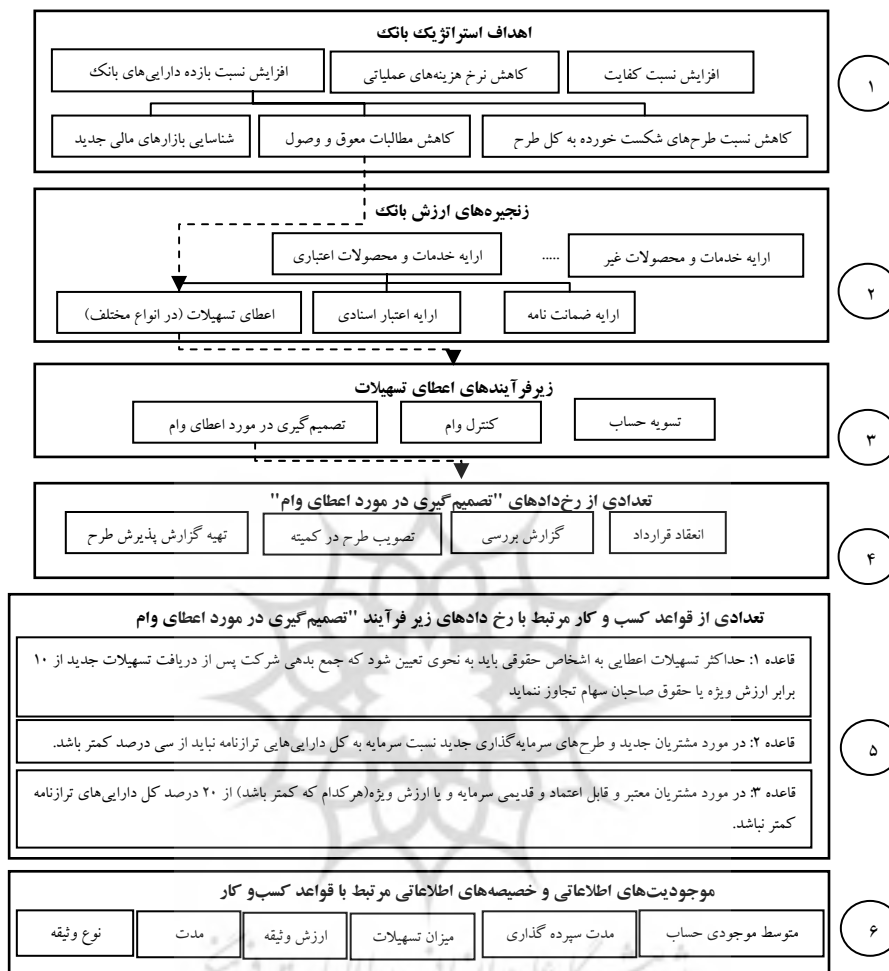 اهداف استراتژیک بانک
افزایش نسبت کفایت
کاهش نرخ هزینه‌های عملیاتی
افزایش نسبت بازده دارایی‌های بانک
۱
کاهش نسبت طرح‌های شکست خورده به کل طرح
کاهش مطالبات معوق و وصول
شناسایی بازارهای مالی جدید
زنجیره‌های ارزش بانک
ارایه خدمات و محصولات غیر
.....
ارایه خدمات و محصولات اعتباری
۲
ارایه ضمانت نامه
ارایه اعتبار اسنادی
اعطای تسهیلات (در انواع مختلف)
زیرفرآیندهای اعطای تسهیلات
تسویه حساب
کنترل وام
تصمیم‌گیری در مورد اعطای وام
۳
تعدادی از رخ‌دادهای "تصمیم‌گیری در مورد اعطای وام"
انعقاد قرارداد
گزارش بررسی
تصویب طرح در کمیته
تهیه گزارش پذیرش طرح
۴
تعدادی از قواعد کسب و کار مرتبط با رخ دادهای زیر فرآیند "تصمیم‌گیری در مورد اعطای وام
قاعده ۱: حداکثر تسهیلات اعطایی به اشخاص حقوقی باید به نحوی تعیین شود که جمع بدهی شرکت پس از دریافت تسهیلات جدید از ۱۰
برابر ارزش ویژه یا حقوق صاحبان سهام تجاوز ننماید
قاعده ۲: در مورد مشتریان جدید و طرح‌های سرمایه‌گذاری جدید نسبت سرمایه به کل دارایی‌هایی ترازنامه نباید از سی درصد کمتر باشد.
۵
قاعده ۳: در مورد مشتریان معتبر و قابل اعتماد و قدیمی سرمایه و یا ارزش ویژه(هرکدام که کمتر باشد) از ۲۰ درصد کل دارایی‌های ترازنامه
کمتر نباشد.
موجودیت‌های اطلاعاتی و خصیصه‌های اطلاعاتی مرتبط با قواعد کسب‌و کار
متوسط موجودی حساب
مدت سپرده گذاری
میزان تسهیلات
ارزش وثیقه
مدت
نوع وثیقه
۶